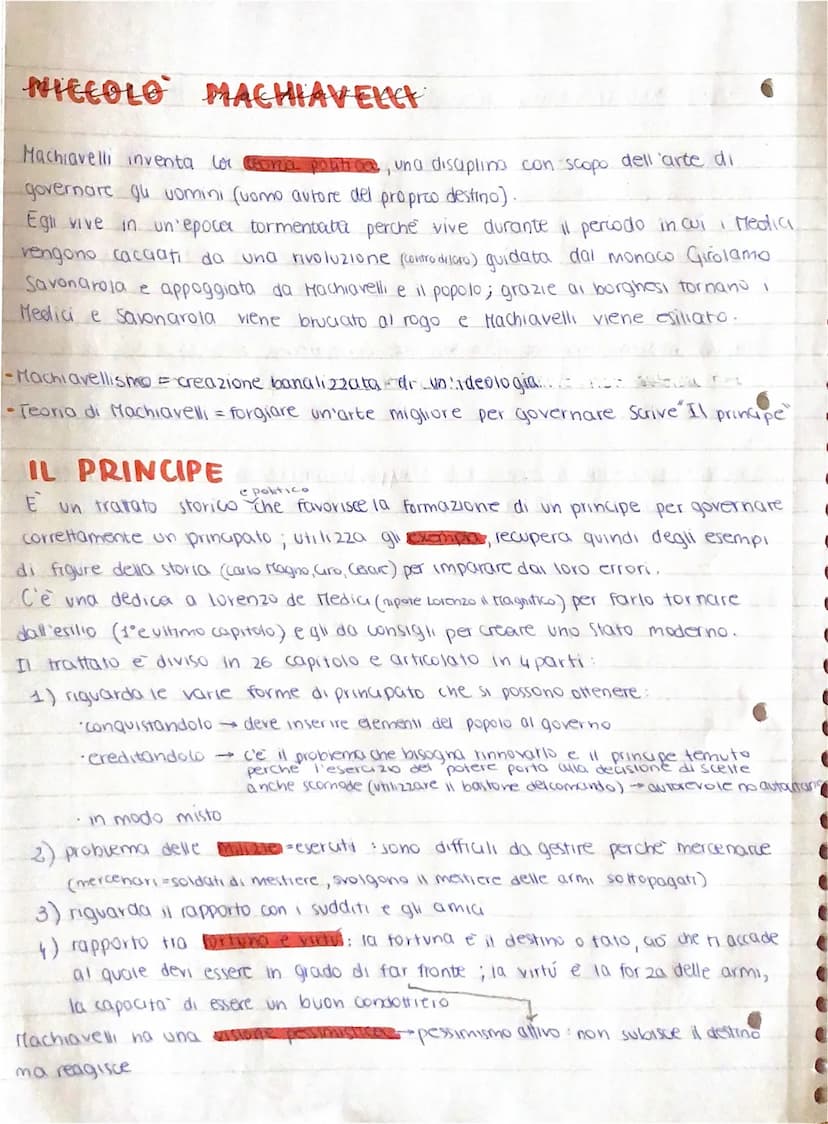 NICCOLÒ MACHIAVELLI
Machiavelli inventa la teoria politica, una disciplina con scopo dell'arte di
governare gli uomini (uomo autore del proprio destino).
Egli vive in un'epoca tormentata perché vive durante il periodo in cui i Medici
vengono cacciati da una rivoluzione (contro di loro) guidata dal monaco Girolamo
Savonarola e appoggiata da Machiavelli e il popolo; grazie ai borghesi tornano i
Medici e Savonarola viene bruciato al rogo e Machiavelli viene esiliato.
-Machiavellismo = creazione banalizzata di un'ideologia
•Teoria di Machiavelli = forgiare un'arte migliore per governare scrive "Il principe"
IL PRINCIPE
e politico
È un trattato storico che favorisce la formazione di un principe per governare
correttamente un principato; utilizza gli exempla, recupera quindi degli esempi
di figure della storia (Carlo Magno, Ciro, Cesare) per imparare dai loro errori.
C'è una dedica a Lorenzo de Medici (nipote Lorenzo il Magnifico) per farlo tornare
dall'esilio (1° e ultimo capitolo) e gli da consigli per creare uno stato moderno.
Il trattato è diviso in 26 capitolo e articolato in 4 parti:
1) riguarda le varie forme di principato che si possono ottenere:
·conquistandolo → deve inserire elementi del popolo al governo
·ereditandolo → c'è il problema che bisogna rinnovarlo e il principe temuto
perché l'esercizio del potere porta alla decisione di scelte
anche scomode (utilizzare il bastone del comando) → autorevole no autoritario
· in modo misto
2) problema delle milizie = eserciti : sono difficili da gestire perché mercenarie
(mercenari = soldati di mestiere, svolgono il mestiere delle armi sottopagati)
3) riguarda il rapporto con i sudditi e gli amici
4) rapporto tra fortuna e virtù: la fortuna è il destino o fato, ciò che ti accade
al quale devi essere in grado di far fronte; la virtù è la forza delle armi,
la capacità di essere un buon condottiero
Machiavelli ha una visione pessimistica → pessimismo attivo: non subisce il destino
ma reagisce